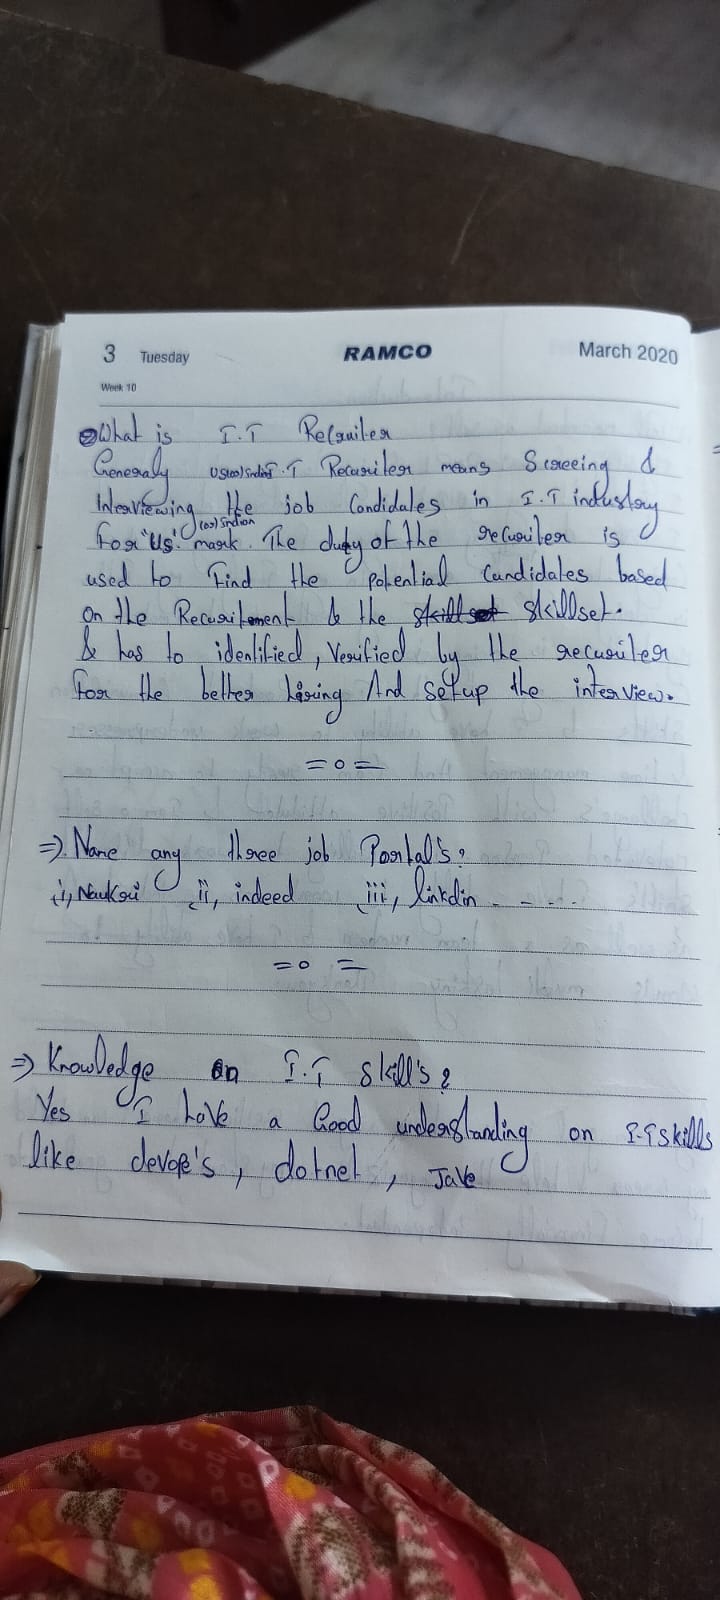 3 Tuesday RAMCO March 2020
Week 10
What is I.T Recruiter
Generaly US(or)Indian I.T Recuriter means Screeing &
Interviewing the job Candidates in I.T industry
(or) Indian
For "Us". mark. The duty of the recuriter is
used to Find the potential Candidates based
on the Recuritement & the skillset skillset.
& has to identified, Verified by the recuriter
for the better hiring And setup the interview.
=o=
=> Name any three job Portal's?
i, Naukri ii, indeed iii, linkdin - - - .
=o=
=> Knowledge on I.T Skill's?
Yes I have a Good understanding on I.T skills
like devop's, dotnet, Jave